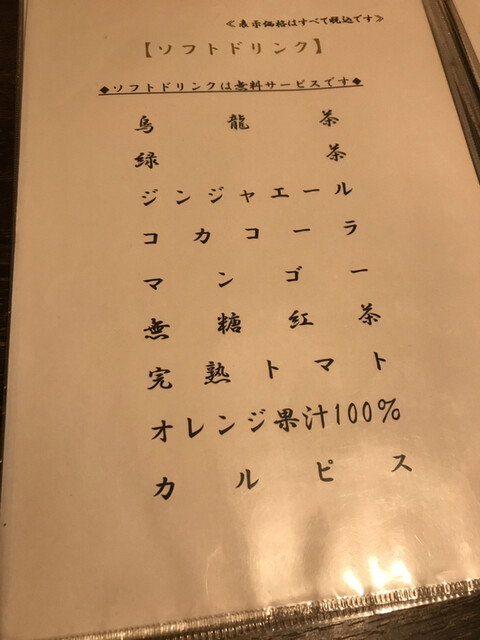 ≪表示価格はすべて税込です≫
【ソフトドリンク】
◆ソフトドリンクは無料サービスです◆
烏龍茶
緑茶
ジンジャエール
コカコーラ
マンゴー
無糖紅茶
完熟トマト
オレンジ果汁100%
カルピス